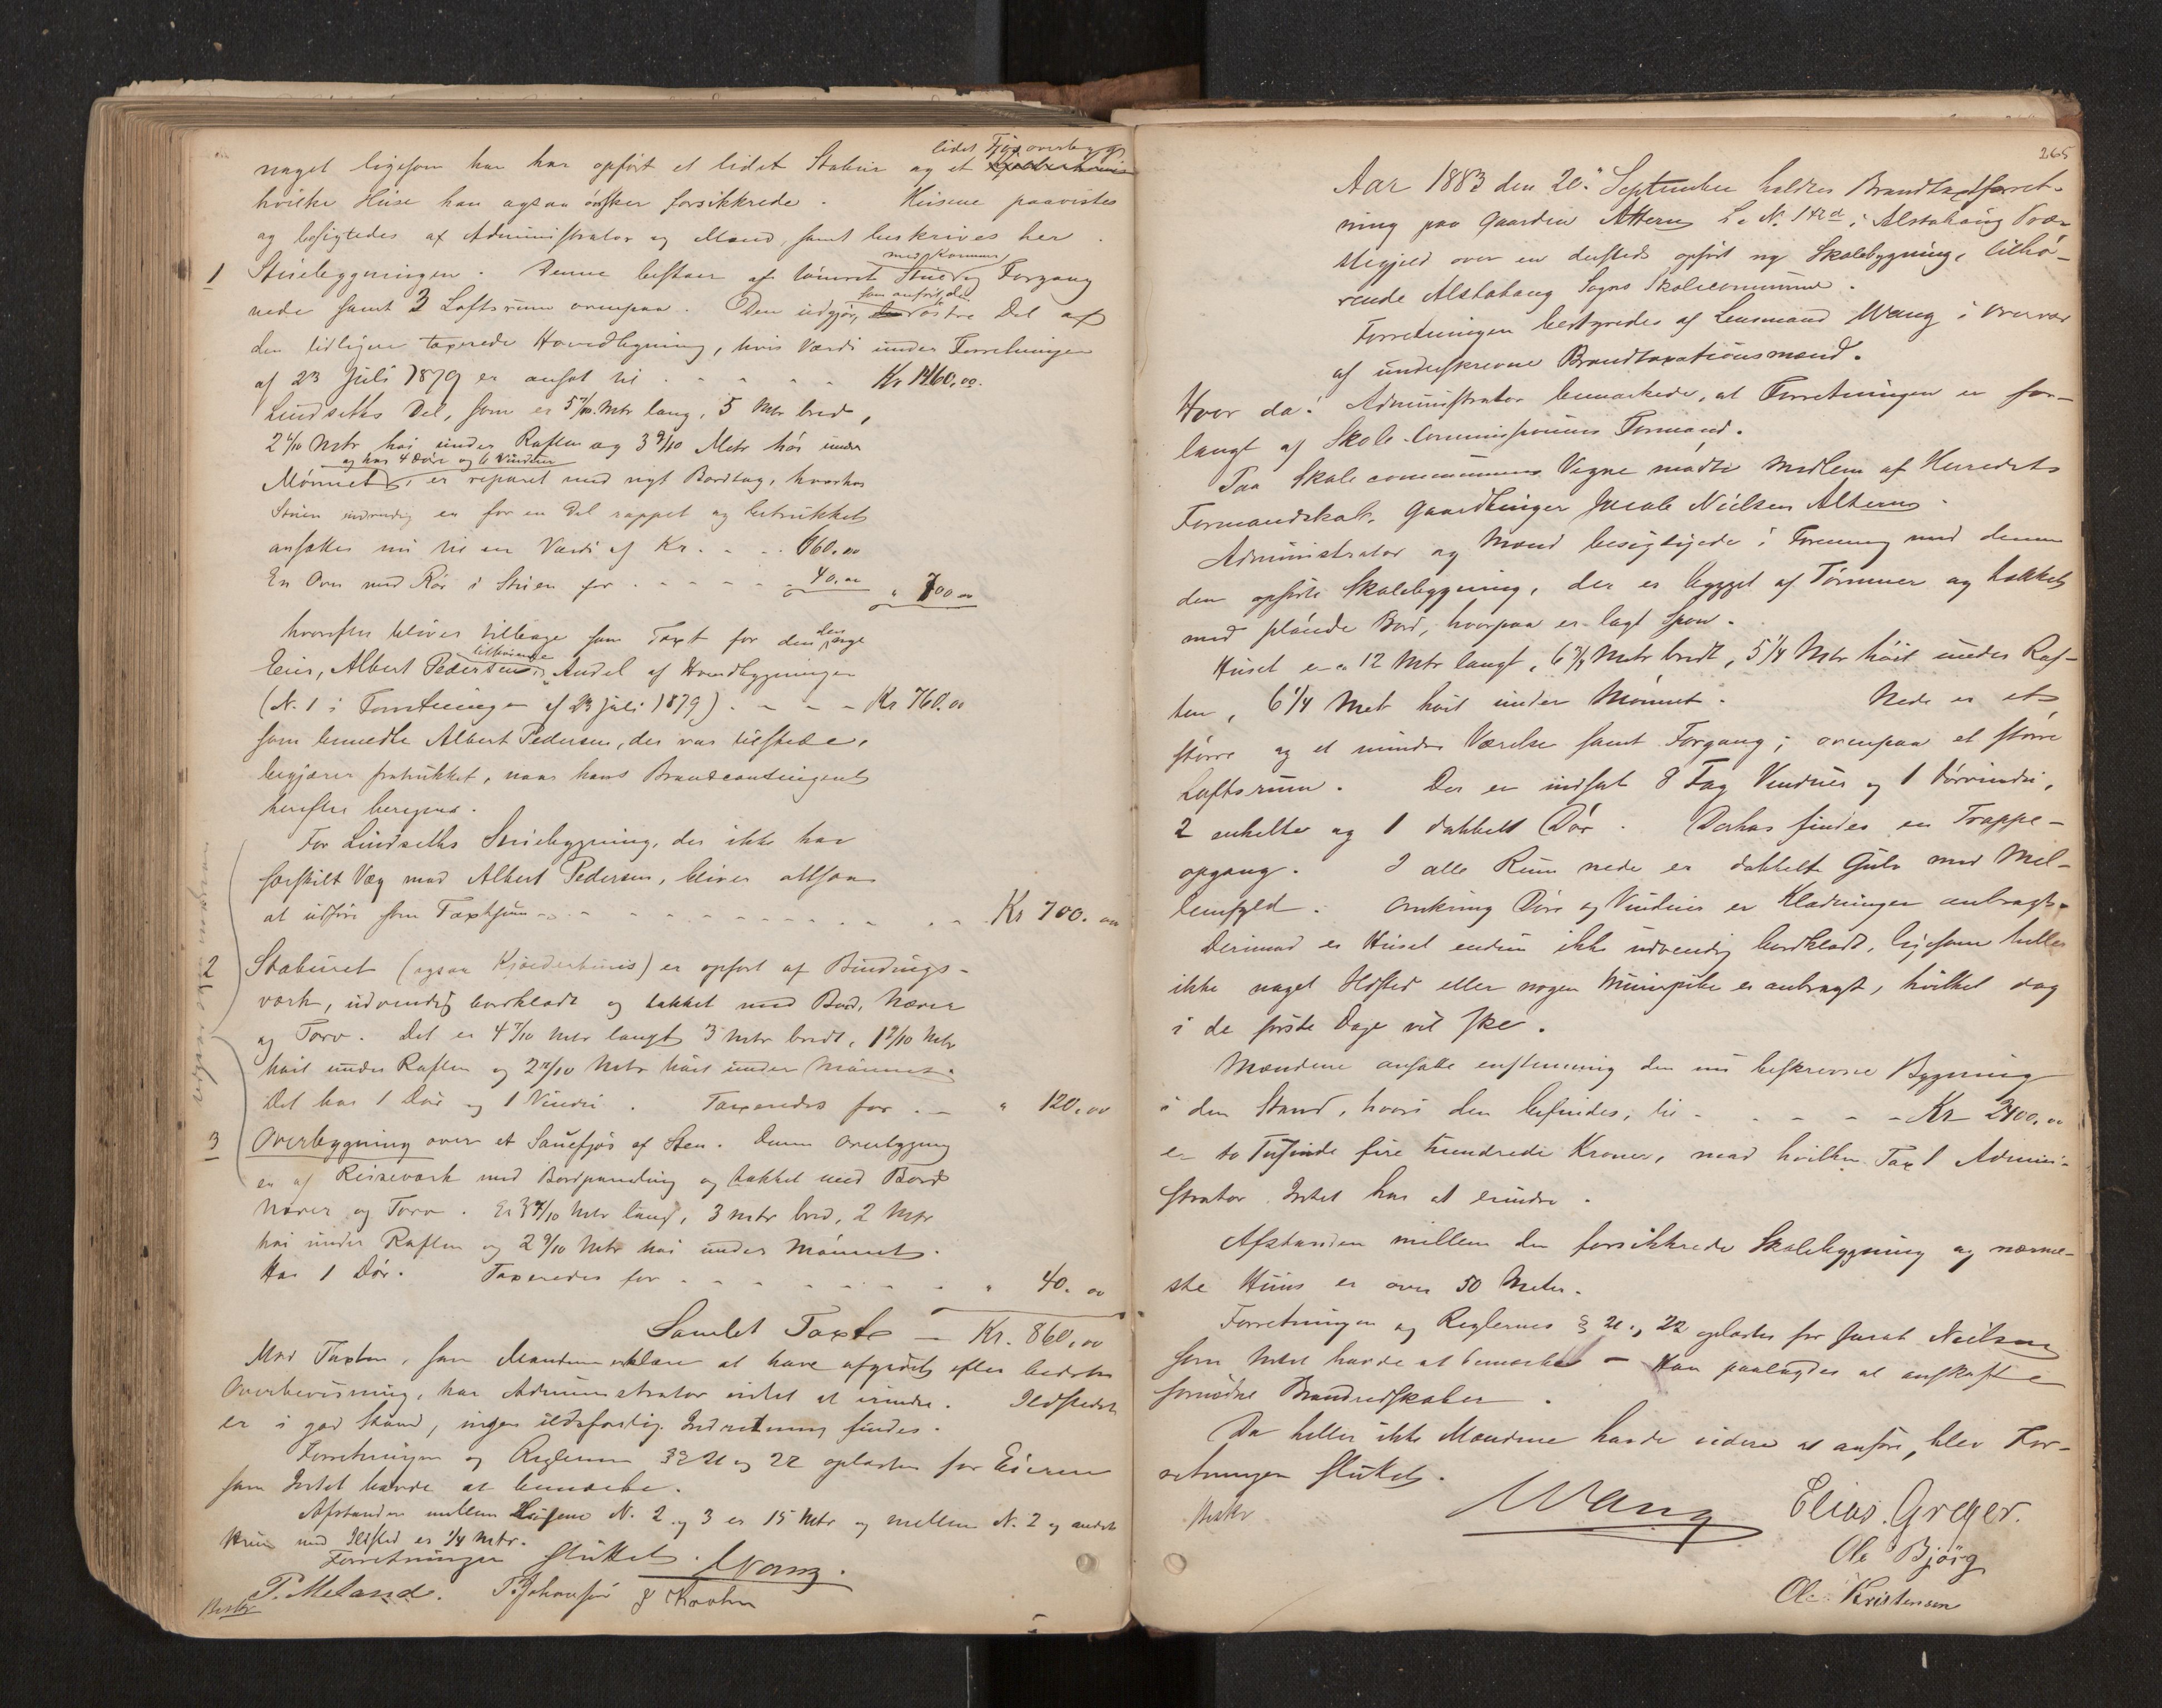 lidet Fjøs overbygg
noget ligesom han har opført et lidet Stabur og et
hvilke Huse han ogsaa ønsker forsikkrede. Husene paavistes
og besigtedes af Administrator og Mænd, samt beskrives her.
med Kammer
1 Stuebygningen. Denne bestaar af tømret Stue og Forgang
som anført, den
nede samt 3 Loftsrum ovenpaa. Den udgjør østre Del af
den tidligere taxerede Hovedbygning, hvis Værdi under Forretningen
af 23 Juli 1879 er ansat til Kr 1460,00.
Lindseths Del, som er 5 7/10 Mtr lang, 5 Mtr bred,
2 4/10 Mtr høi under Raften og 3 9/10 Mtr høi under
og har 4 Døre og 6 Vinduer
Mønnet, er reparet med nyt Bordtag, hvorhos
Stuen indvendig er for en Del rappet og betrukket
ansættes nu til en Værdi af Kr. 660.00
En Ovn med Rør i Stuen for 40.00 " 700 00
hvorefter bliver tilbage som Taxt for den
tilhørende
Eier, Albert Pedersen Andel af Hovedbygningen
(N. 1 i Forretningen af 23 juli 1879) Kr 760.00
som bemeldte Albert Pedersen, der var tilstede,
begjærer fratrukket, naar hans Brandcontingent
herefter beregnes.
For Lindseths Stuebygning, der ikke har
særskilt Væg mod Albert Pedersen, bliver altsaa
at udføre som Taxtsum Kr 700.00
2 Staburet (ogsaa Kjælderhuus) er opført af Bindings-
værk, udvendig bordklædt og takket med Bord, Næver
og Torv. Det er 4 7/10 Mtr langt 3 Mtr bredt, 1 9/10 Mtr
høit under Raften og 2 7/10 Mtr høit under Mønnet.
Det har 1 Dør og 1 Vindu. Taxeredes for " 120,00
3 Overbygning over et Sauefjøs af Sten. Denne overbygning
er af Reisværk med Bordpaneling og takket med Bord
Næver og Torv. Er 3 4/10 Mtr lang, 3 mtr bred, 2 Mtr
høi under Raften og 2 9/10 Mtr høi under Mønnet.
Har 1 Dør. Taxeredes for " 40.00
Samlet Taxt — Kr. 860,00
Mod Taxten, som Mændene erklære at have afgivet efter bedste
Overbevisning, har Administrator intet at erindre. Ildstedet
er i god Stand, ingen ildsfarlig Indretning findes.
Forretningen og Reglernes §§ 21 og 22 oplæstes for Eieren
som Intet havde at bemærke.
Afstanden mellem Husene N. 2 og 3 er 15 Mtr og mellem N. 2 og andet
Huus med Ildsted er 1/4 Mtr.
Forretningen sluttet. Wang.
P. Meland. P. Johansen J Kroken
265
Aar 1883 den 20. September holdtes Brandtaxtforret-
ning paa Gaarden Altern L. N. i Alstahaug Præ-
stegjeld over en dersteds opført ny Skolebygning, tilhø-
rende Alstahaug Sogns Skolecommune.
Forretningen bestyredes af Lensmand Wang i overvær
af underskrevne Brandtaxationsmænd.
Hvor da: Administrator bemærkede, at Forretningen er for-
langt af Skole-Commissionens Formand.
Paa Skolecommunens Vegne mødte Medlem af Herredets
Formandskab, Gaardbruger Jacob Nielsen Altern.
Administrator og Mænd besigtigede i Forening med denne
den opførte Skolebygning, der er bygget af Tømmer og takket
med pløiede Bord, hvorpaa er lagt Spon.
Huset er 12 Mtr langt, 6 3/4 Mtr bredt, 5 1/4 Mtr høit under Raf-
ten, 6 1/4 Mtr høit under Mønnet. Nede er et
større og et mindre Værelse samt Forgang; ovenpaa et større
Loftsrum. Der er indsat 8 Fag Vinduer og 1 Dørvindu,
2 enkelte og 1 dobbelt Dør. Derhos findes en Trappe-
opgang. I alle Rum nede er dobbelt Gulv med Mel-
lemfyld. Omkring Døre og Vinduer er Klædninger anbragt.
Derimod er Huset endnu ikke udvendig bordklædt, ligesom heller
ikke noget Ildsted eller nogen Muurpibe er anbragt, hvilket dog
i de første Dage vil ske.
Mændene ansatte enstemmig den nu beskrevne Bygning
i den Stand, hvori den befindes, til Kr 2400,00
er to Tusinde fire hundrede Kroner, mod hvilken Taxt Admini-
strator Intet har at erindre.
Afstanden mellem den forsikkrede Skolebygning og nærme-
ste Huus er over 50 Meter.
Forretningen og Reglernes § 21, 22 oplæstes for Jacob Nielsen
som Intet havde at bemærke — Han paalagdes at anskaffe
fornødne Brandredskaber.
Da heller ikke Mændene havde videre at anføre, blev For-
retningen sluttet.
Wang Elias. Greger.
Ole Bjørg
Ole Kristensen